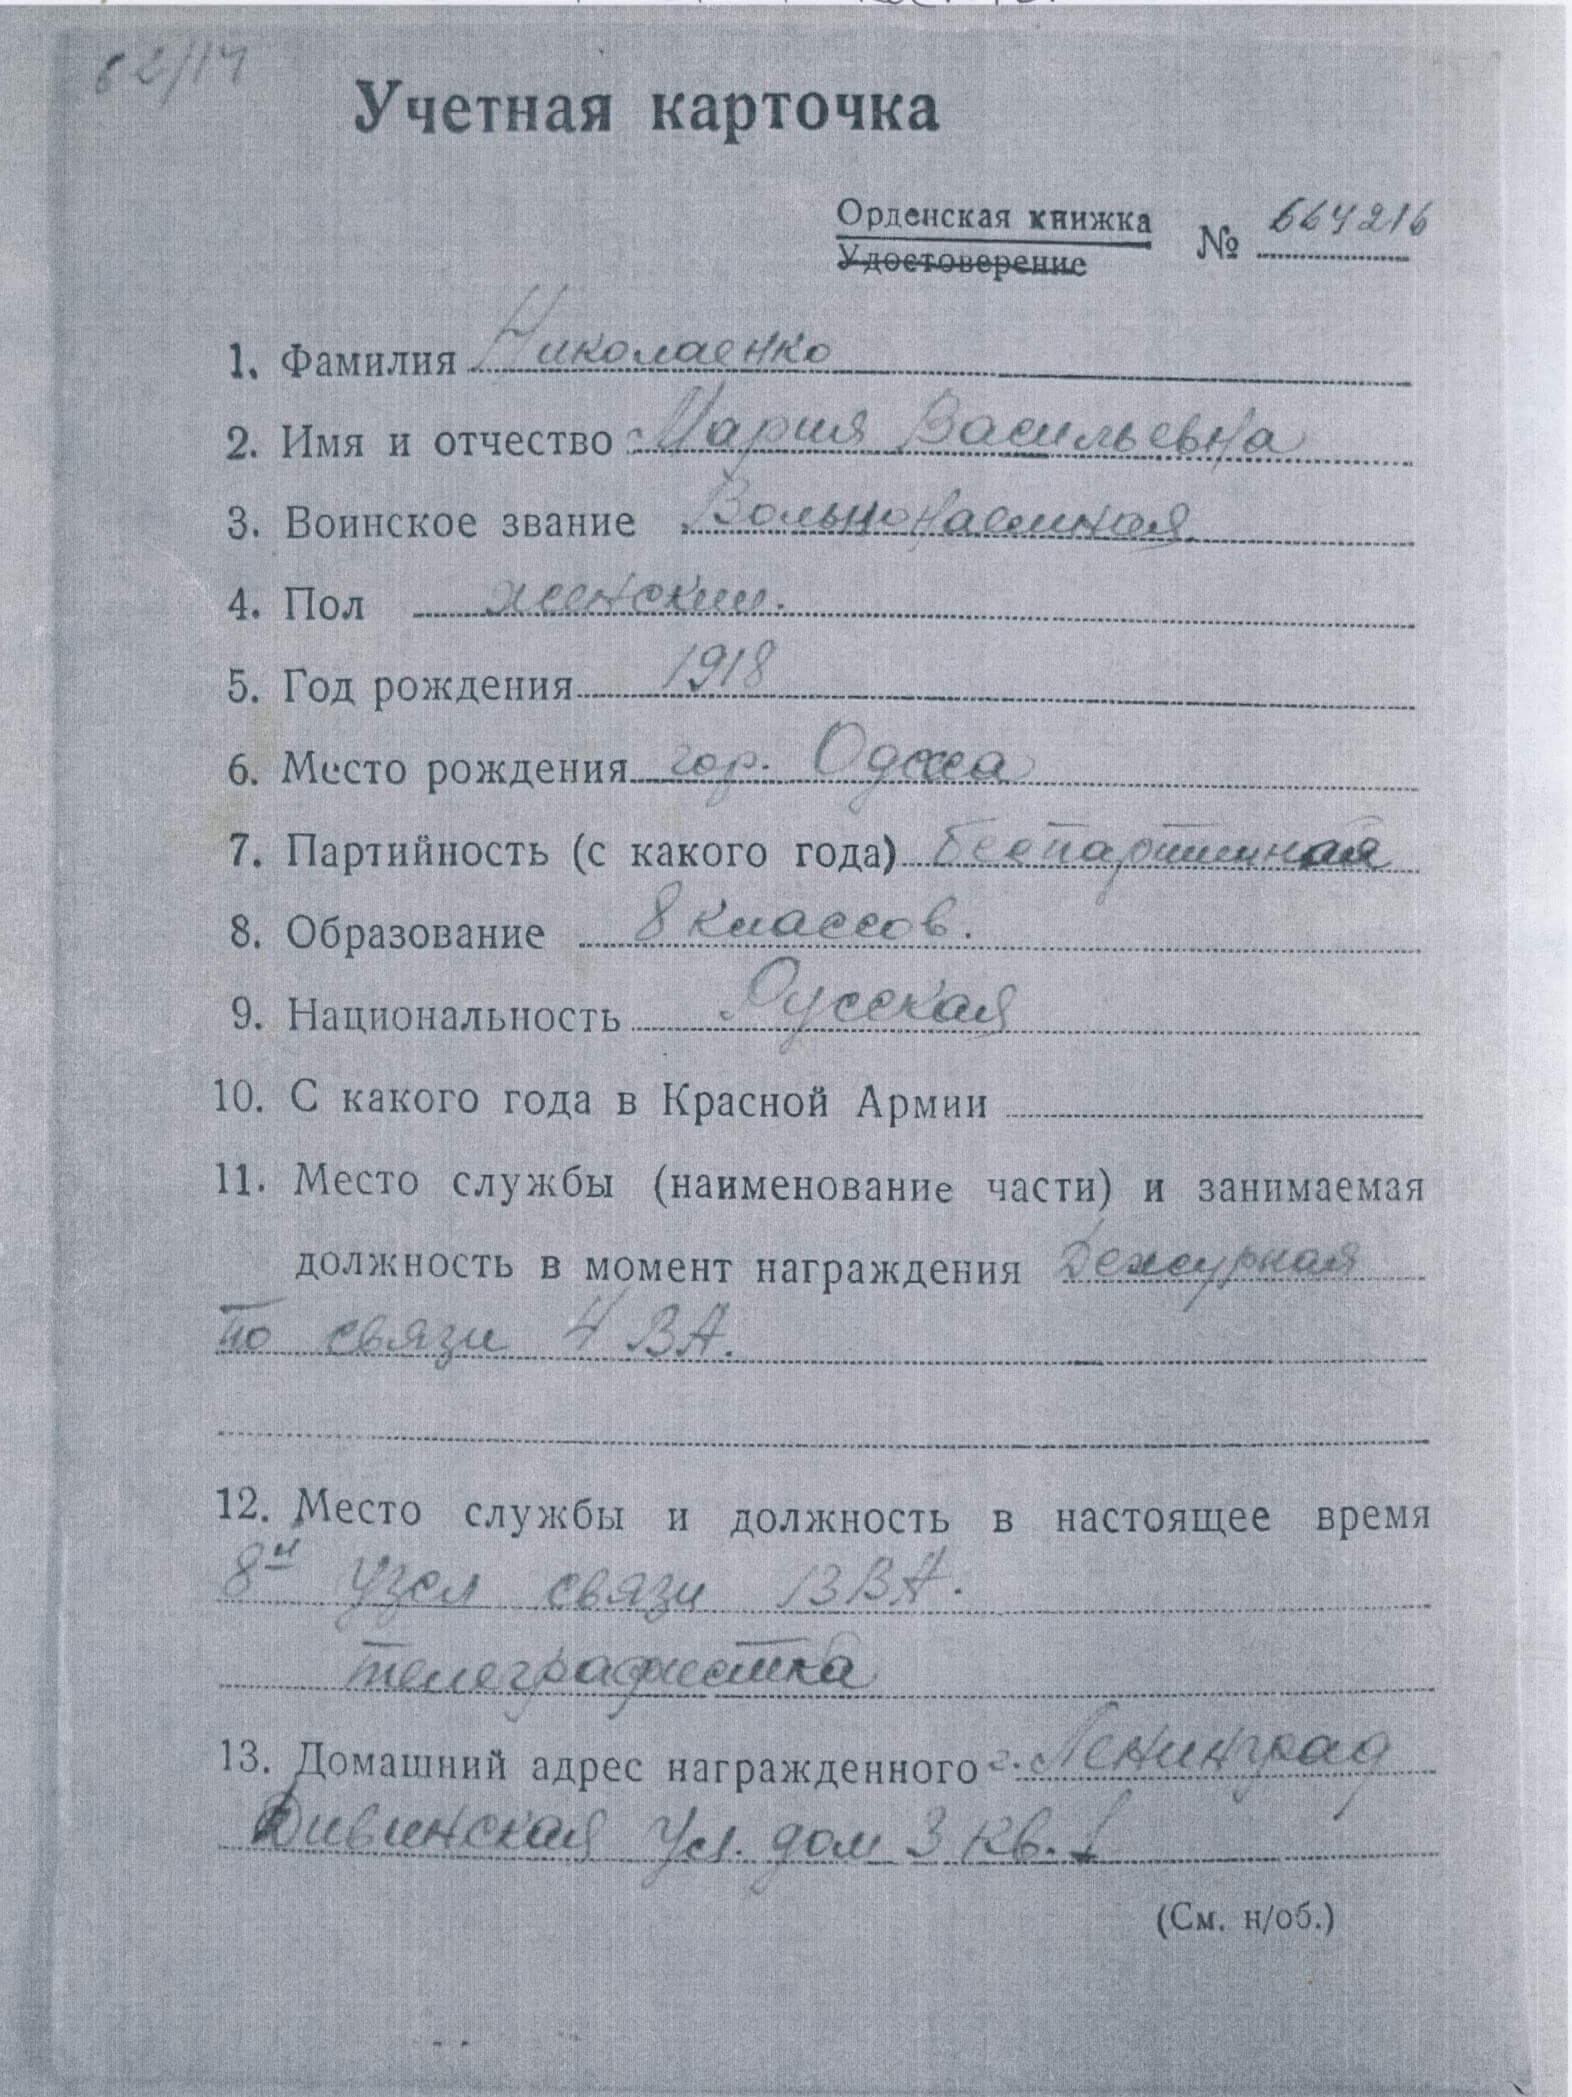 62/14
Учетная карточка
Орденская книжка
Удостоверение
№ 664216
1. Фамилия Николаенко
2. Имя и отчество Мария Васильевна
3. Воинское звание Вольнонаемная
4. Пол женский.
5. Год рождения 1918
6. Место рождения гор. Одесса
7. Партийность (с какого года) беспартийная
8. Образование 8 классов.
9. Национальность Русская
10. С какого года в Красной Армии
11. Место службы (наименование части) и занимаемая
должность в момент награждения Дежурная
по связи 4 ВА.
12. Место службы и должность в настоящее время
8й узел связи 13 ВА.
телеграфистка
13. Домашний адрес награжденного г. Ленинград
Дивинская ул. дом 3 кв. 1
(См. н/об.)